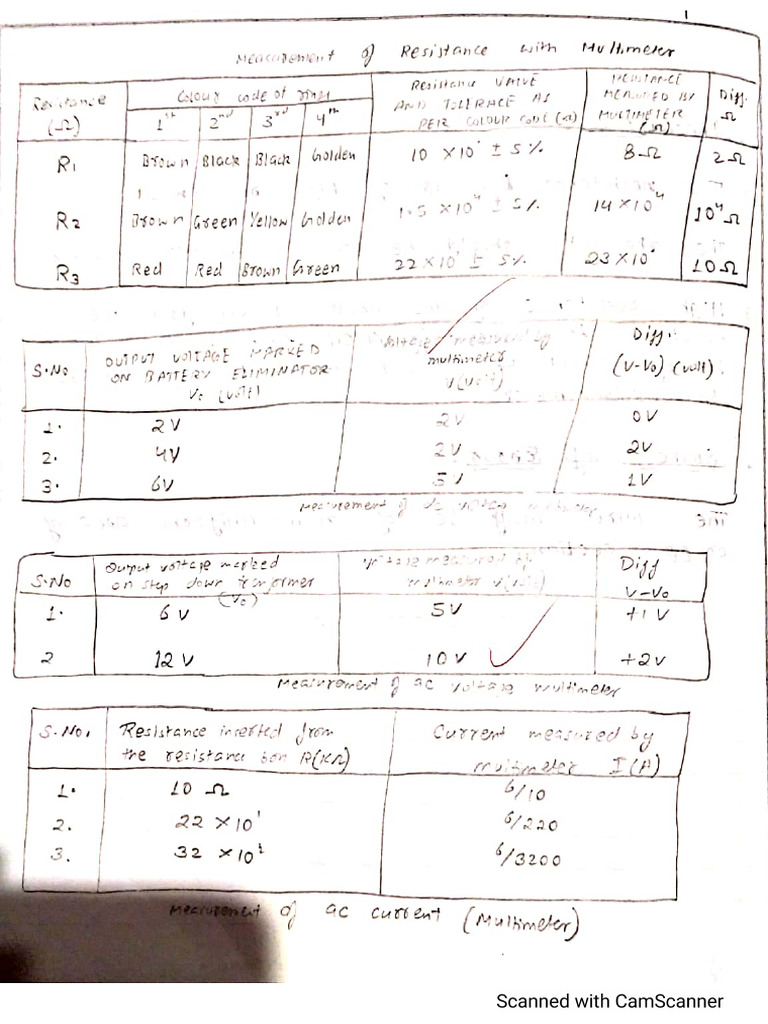 1
Measurement of Resistance with Multimeter
Resistance (Ω) | Colour code of rings | Resistance VALUE AND TOLERACE AS PER COLOUR CODE (Ω) | RESISTANCE MEASURED BY MULTIMETER (Ω) | Diff. Ω
1st | 2nd | 3rd | 4th
R1 | Brown | Black | Black | Golden | 10 × 10° ± 5% | 8Ω | 2Ω
R2 | Brown | Green | Yellow | Golden | 1.5 × 10⁴ ± 5% | 14 × 10⁴ | 10⁴Ω
R3 | Red | Red | Brown | Green | 22 × 10¹ ± 5% | 23 × 10¹ | 10Ω
S.No | OUTPUT VOLTAGE MARKED ON BATTERY ELIMINATOR V₀ (Volts) | Voltage measured by multimeter V(volt) | Diff. (V-V₀) (volt)
1. | 2V | 2V | 0V
2. | 4V | 2V | 2V
3. | 6V | 5V | 1V
Measurement of voltage
S.No | Output voltage marked on step down transformer (V₀) | Voltage measured by multimeter V(volt) | Diff V-V₀
1. | 6V | 5V | +1V
2 | 12V | 10V | +2V
Measurement of ac voltage multimeter
S.No. | Resistance inserted from the resistance box R(KΩ) | Current measured by multimeter I(A)
1. | 10 Ω | 6/10
2. | 22 × 10¹ | 6/220
3. | 32 × 10² | 6/3200
Measurement of ac current (Multimeter)
Scanned with CamScanner